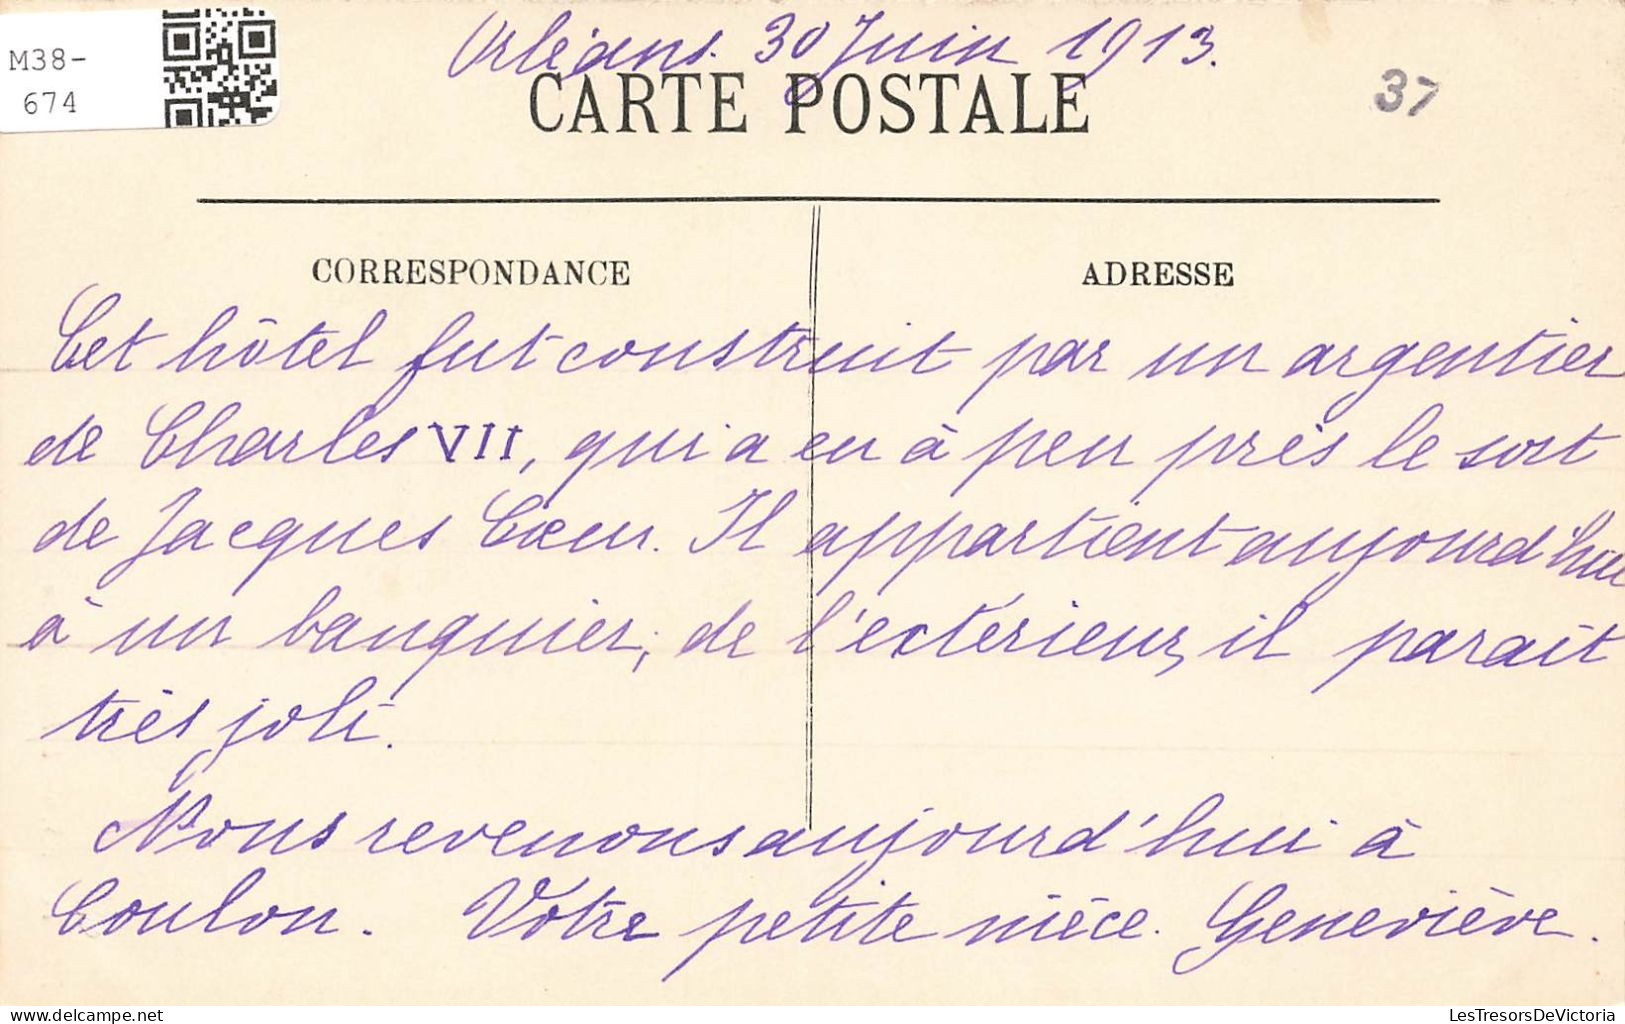 M38-
674
Orléans. 30 Juin 1913.
37
CARTE POSTALE
CORRESPONDANCE
ADRESSE
Cet hôtel fut construit par un argentier
de Charles VII, qui a eu à peu près le sort
de Jacques Cœur. Il appartient aujourd'hui
à un banquier; de l'extérieur, il paraît
très joli.
Nous revenons aujourd'hui à
Coulon. Votre petite nièce. Geneviève.
delcampe.net
LesTresorsDeVictoria